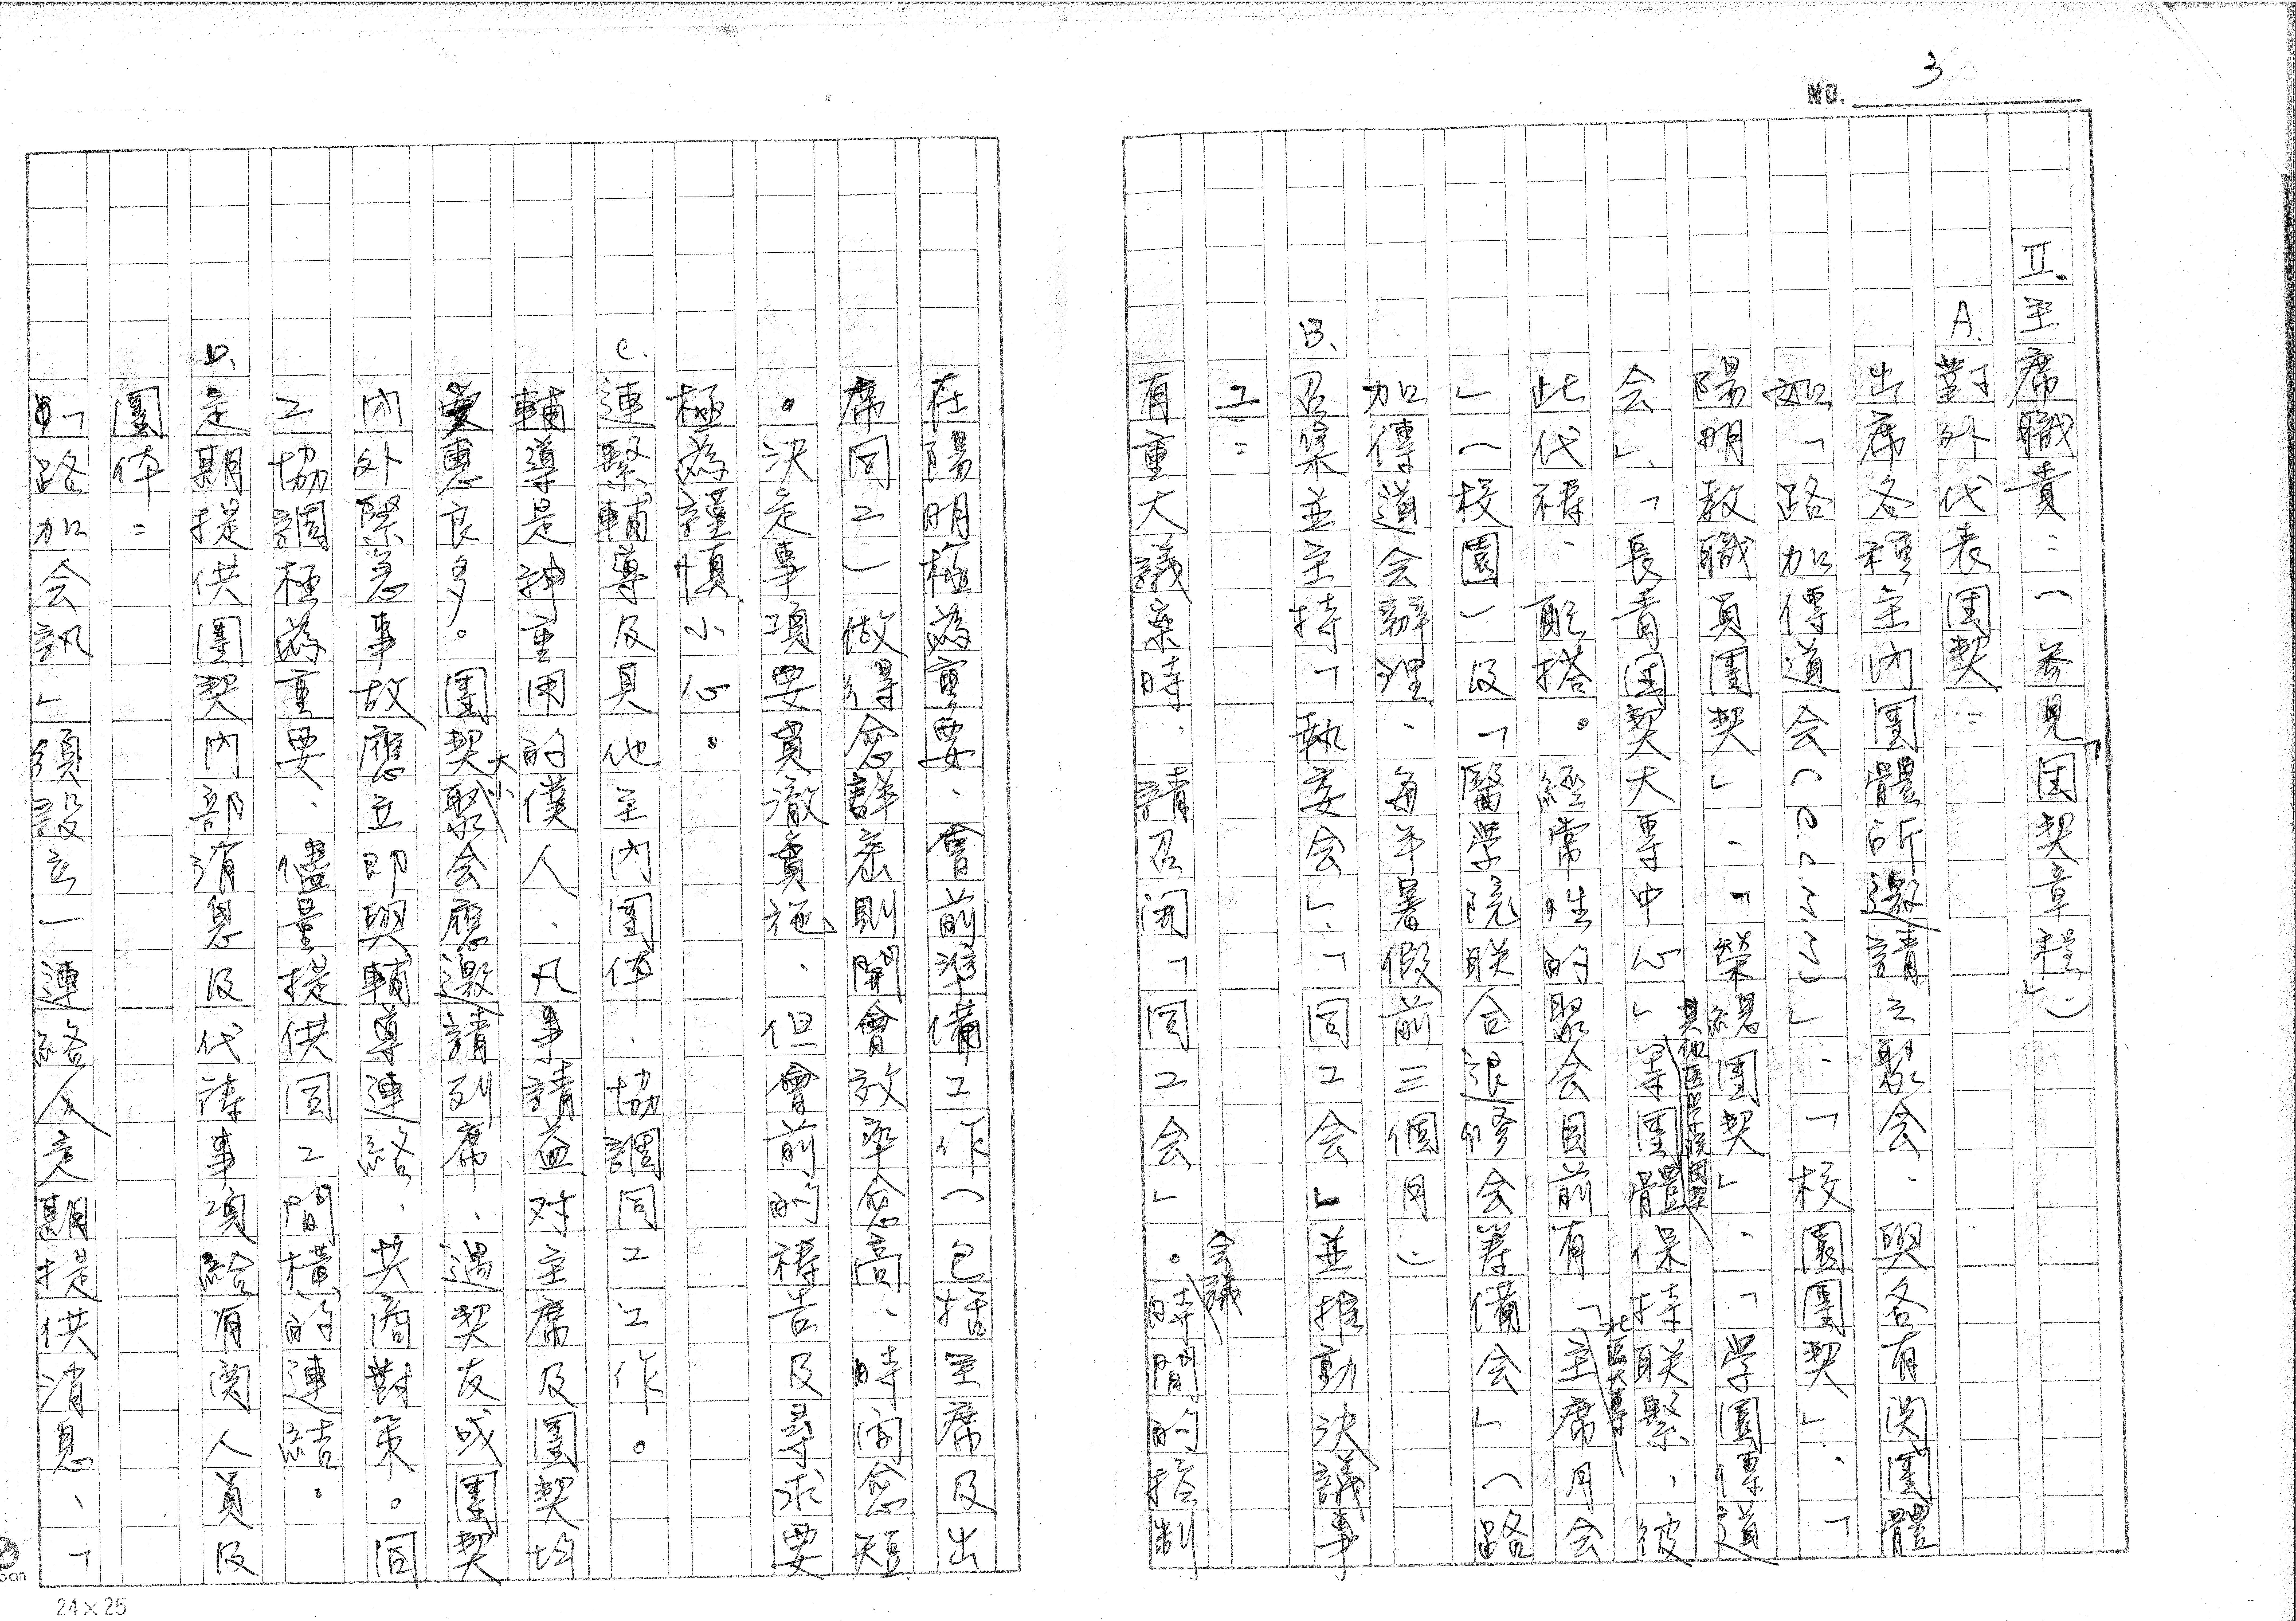 NO. 3
II.主席職責：（參見「团契章程」）
A.對外代表团契：
出席各種主內團體所邀請之聚会、與各有関團體
如「路加傳道会(C.C.M.M)」、「校園團契」、「
陽明教職員團契」、「榮總團契」、「學園傳道
会」、「長青团契大專中心」等其他医学院团契團體保持联繫，彼
此代禱、配搭。經常性的聚会目前有「北區大專主席月会
」（校園）及「醫學院联合退修会籌備会」（路
加傳道会辦理、每年暑假前三個月）
B.召集並主持「執委会」、「同工会」並推動決議事
工：
有重大議案時，請召開「同工会」。会議時間的控制
在陽明極為重要，會前準備工作（包括主席及出
席同工）做得愈詳盡則開會效率愈高，時间愈短
。決定事項要貫徹實施，但會前的禱告及尋求要
極為謹慎小心。
C.連繫輔導及其他主内團体，協調同工工作。
輔導是神重用的僕人，凡事請益对主席及團契均
受惠良多。團契大小聚会應邀請列席，遇契友或團契
內外緊急事故應立即與輔導連絡，共商對策。同
工協調極為重要，儘量提供同工間橫的連結。
D.定期提供團契內部消息及代禱事項給有関人員及
團体：
「路加会訊」須設立一連絡人定期提供消息、「
24×25